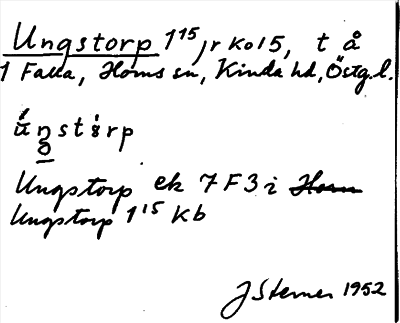 Ungstorp 1¹⁵, jr Ko15, t å
1 Falla, Horns sn, Kinda hd, Östg.l.
Ungstorp ek 7F3i Horn
Ungstorp 1¹⁵ Kb
J Sterner 1952